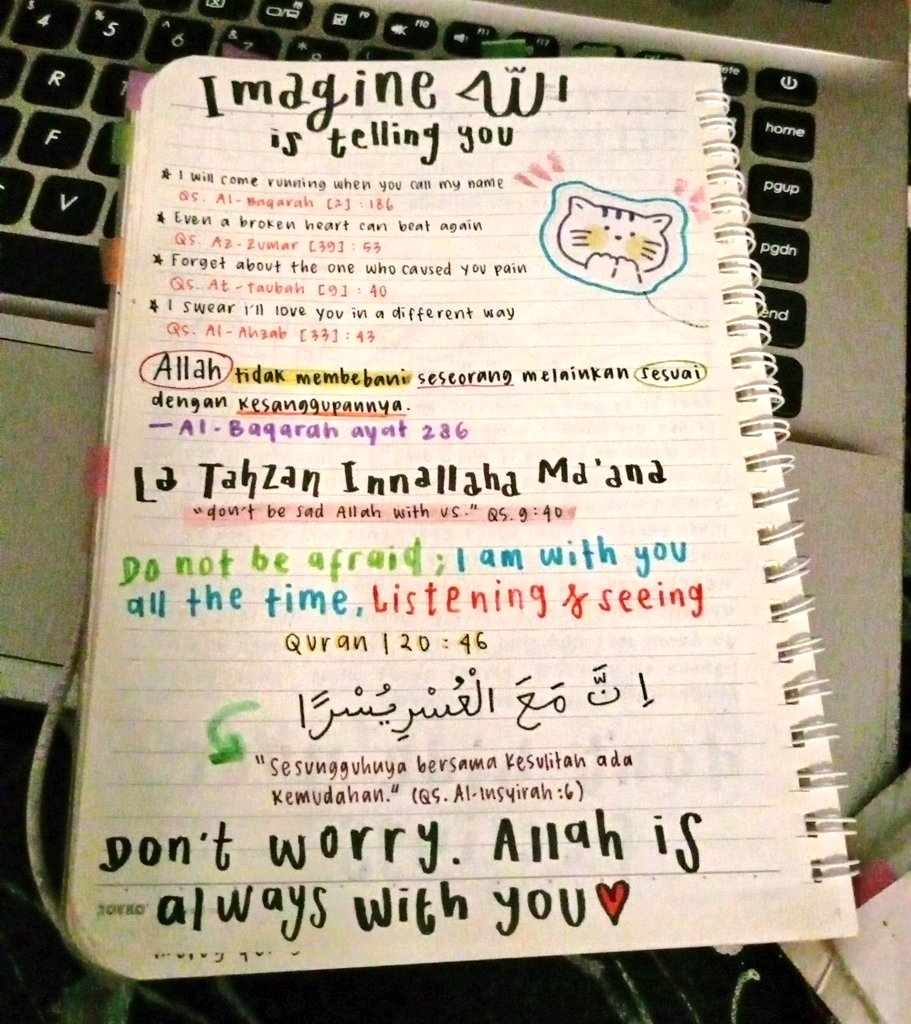 Imagine الله
is telling you
* I will come running when you call my name
QS. Al-Baqarah [2] : 186
* Even a broken heart can beat again
QS. Az-Zumar [39] : 53
* Forget about the one who caused you pain
QS. At-taubah [9] : 40
* I swear i'll love you in a different way
QS. Al-Ahzab [33] : 43
Allah tidak membebani seseorang melainkan sesuai
dengan kesanggupannya.
— Al-Baqarah ayat 286
La Tahzan Innallaha Ma'ana
"don't be sad Allah with us." QS. 9:40
Do not be afraid; I am with you
all the time, Listening & seeing
Quran | 20 : 46
اِنَّ مَعَ الْعُسْرِ يُسْرًا
"Sesungguhnya bersama kesulitan ada
kemudahan." (QS. Al-Insyirah :6)
Don't worry. Allah is
always with you
JOYKO
4
% 5
^ 6
& 7
F8
F9
F10
F11
F12
R
T
F
V
home
pgup
pgdn
end